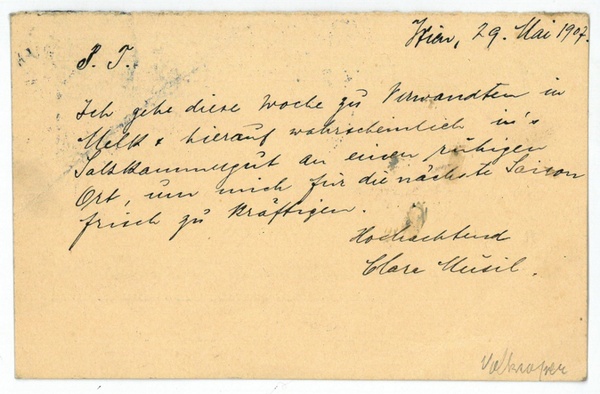 Wien, 29. Mai 1907.
P. T.
Ich gehe diese Woche zu Verwandten in
Melk & hierauf wahrscheinlich in's
Salzkammergut an einen ruhigen
Ort, um mich für die nächste Saison
frisch zu kräftigen.
Hochachtend
Clara Musil.
Volksoper